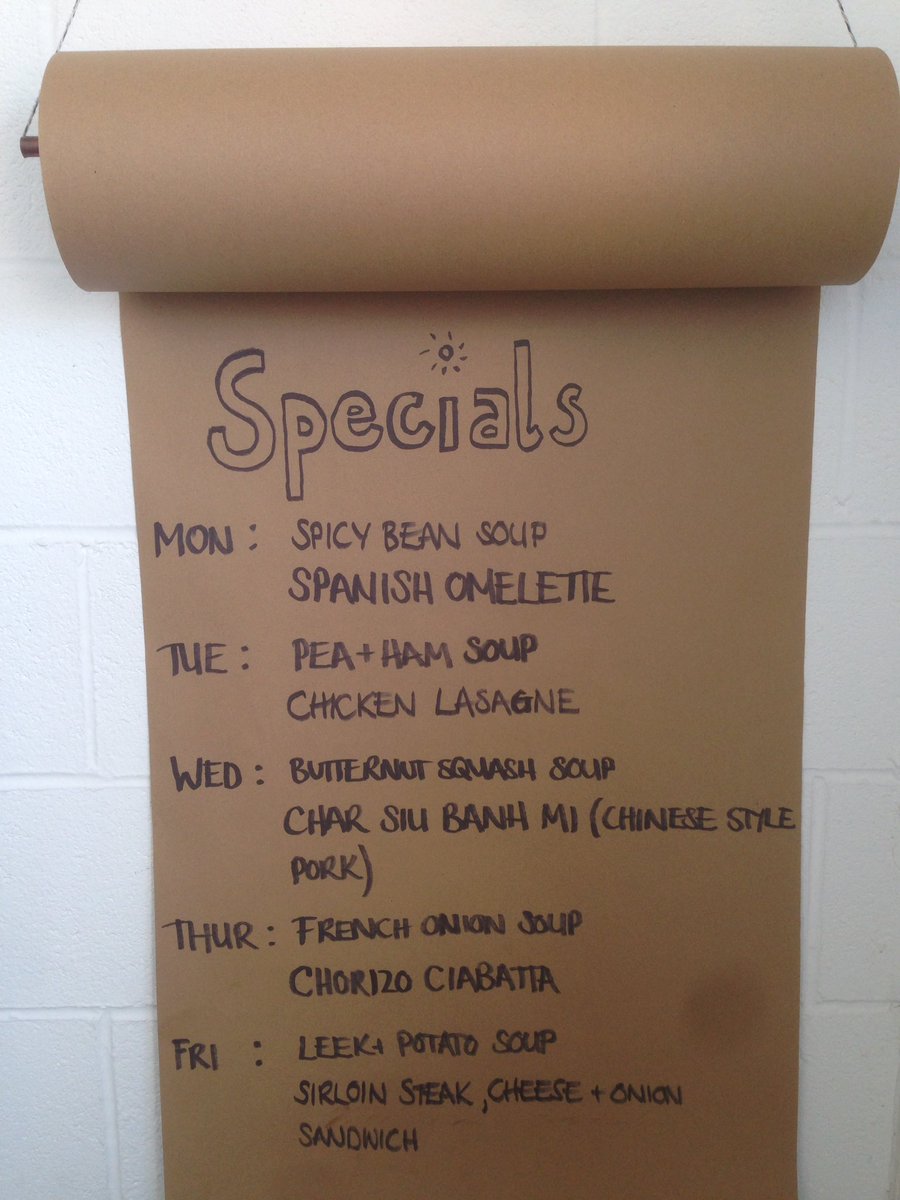 Specials
MON : SPICY BEAN SOUP
SPANISH OMELETTE
TUE : PEA + HAM SOUP
CHICKEN LASAGNE
WED : BUTTERNUT SQUASH SOUP
CHAR SIU BANH MI (CHINESE STYLE
PORK)
THUR : FRENCH ONION SOUP
CHORIZO CIABATTA
FRI : LEEK + POTATO SOUP
SIRLOIN STEAK, CHEESE + ONION
SANDWICH